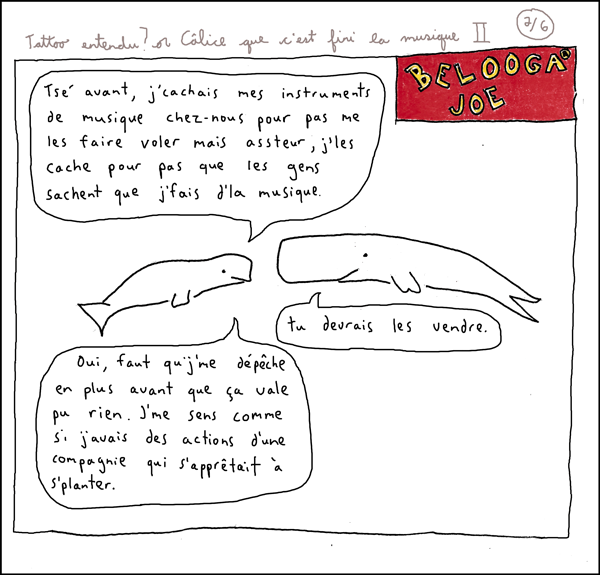 Tattoo entendu? or Câlice que c'est fini la musique II
2/6
BELOOGA
JOE
Tsé avant, j'cachais mes instruments
de musique chez-nous pour pas me
les faire voler mais assteur, j'les
cache pour pas que les gens
sachent que j'fais d'la musique.
tu devrais les vendre.
Oui, faut qu'j'me dépêche
en plus avant que ça vale
pu rien. J'me sens comme
si j'avais des actions d'une
compagnie qui s'apprêtait à
s'planter.